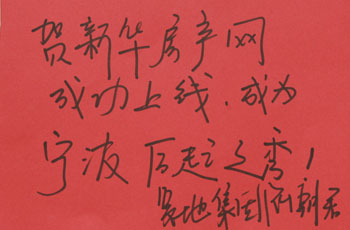 贺新华房产网
成功上线，成为
宁波后起之秀！
地集团